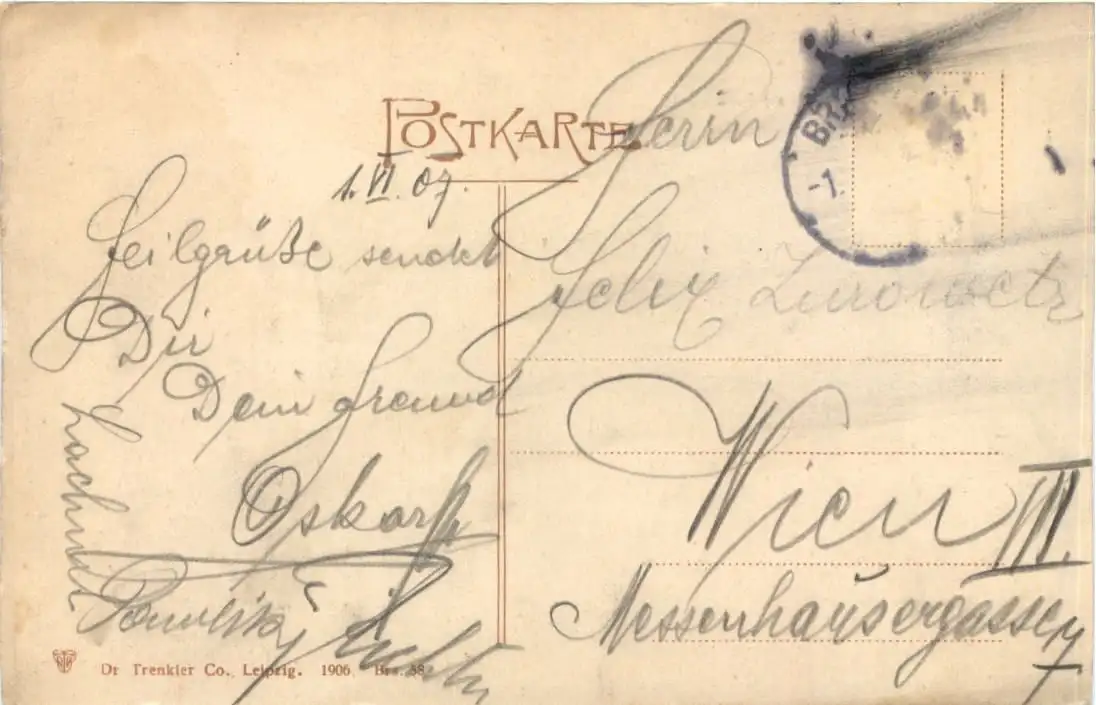 POSTKARTE
1.VI.07.
Heilgrüße sendet
Dir
Dein Freund
Oskar
Herrn
Felix
Wien III.
Messenhausergasse 7
BR
-1.
Dr Trenkler Co., Leipzig. 1906 Brs. 38